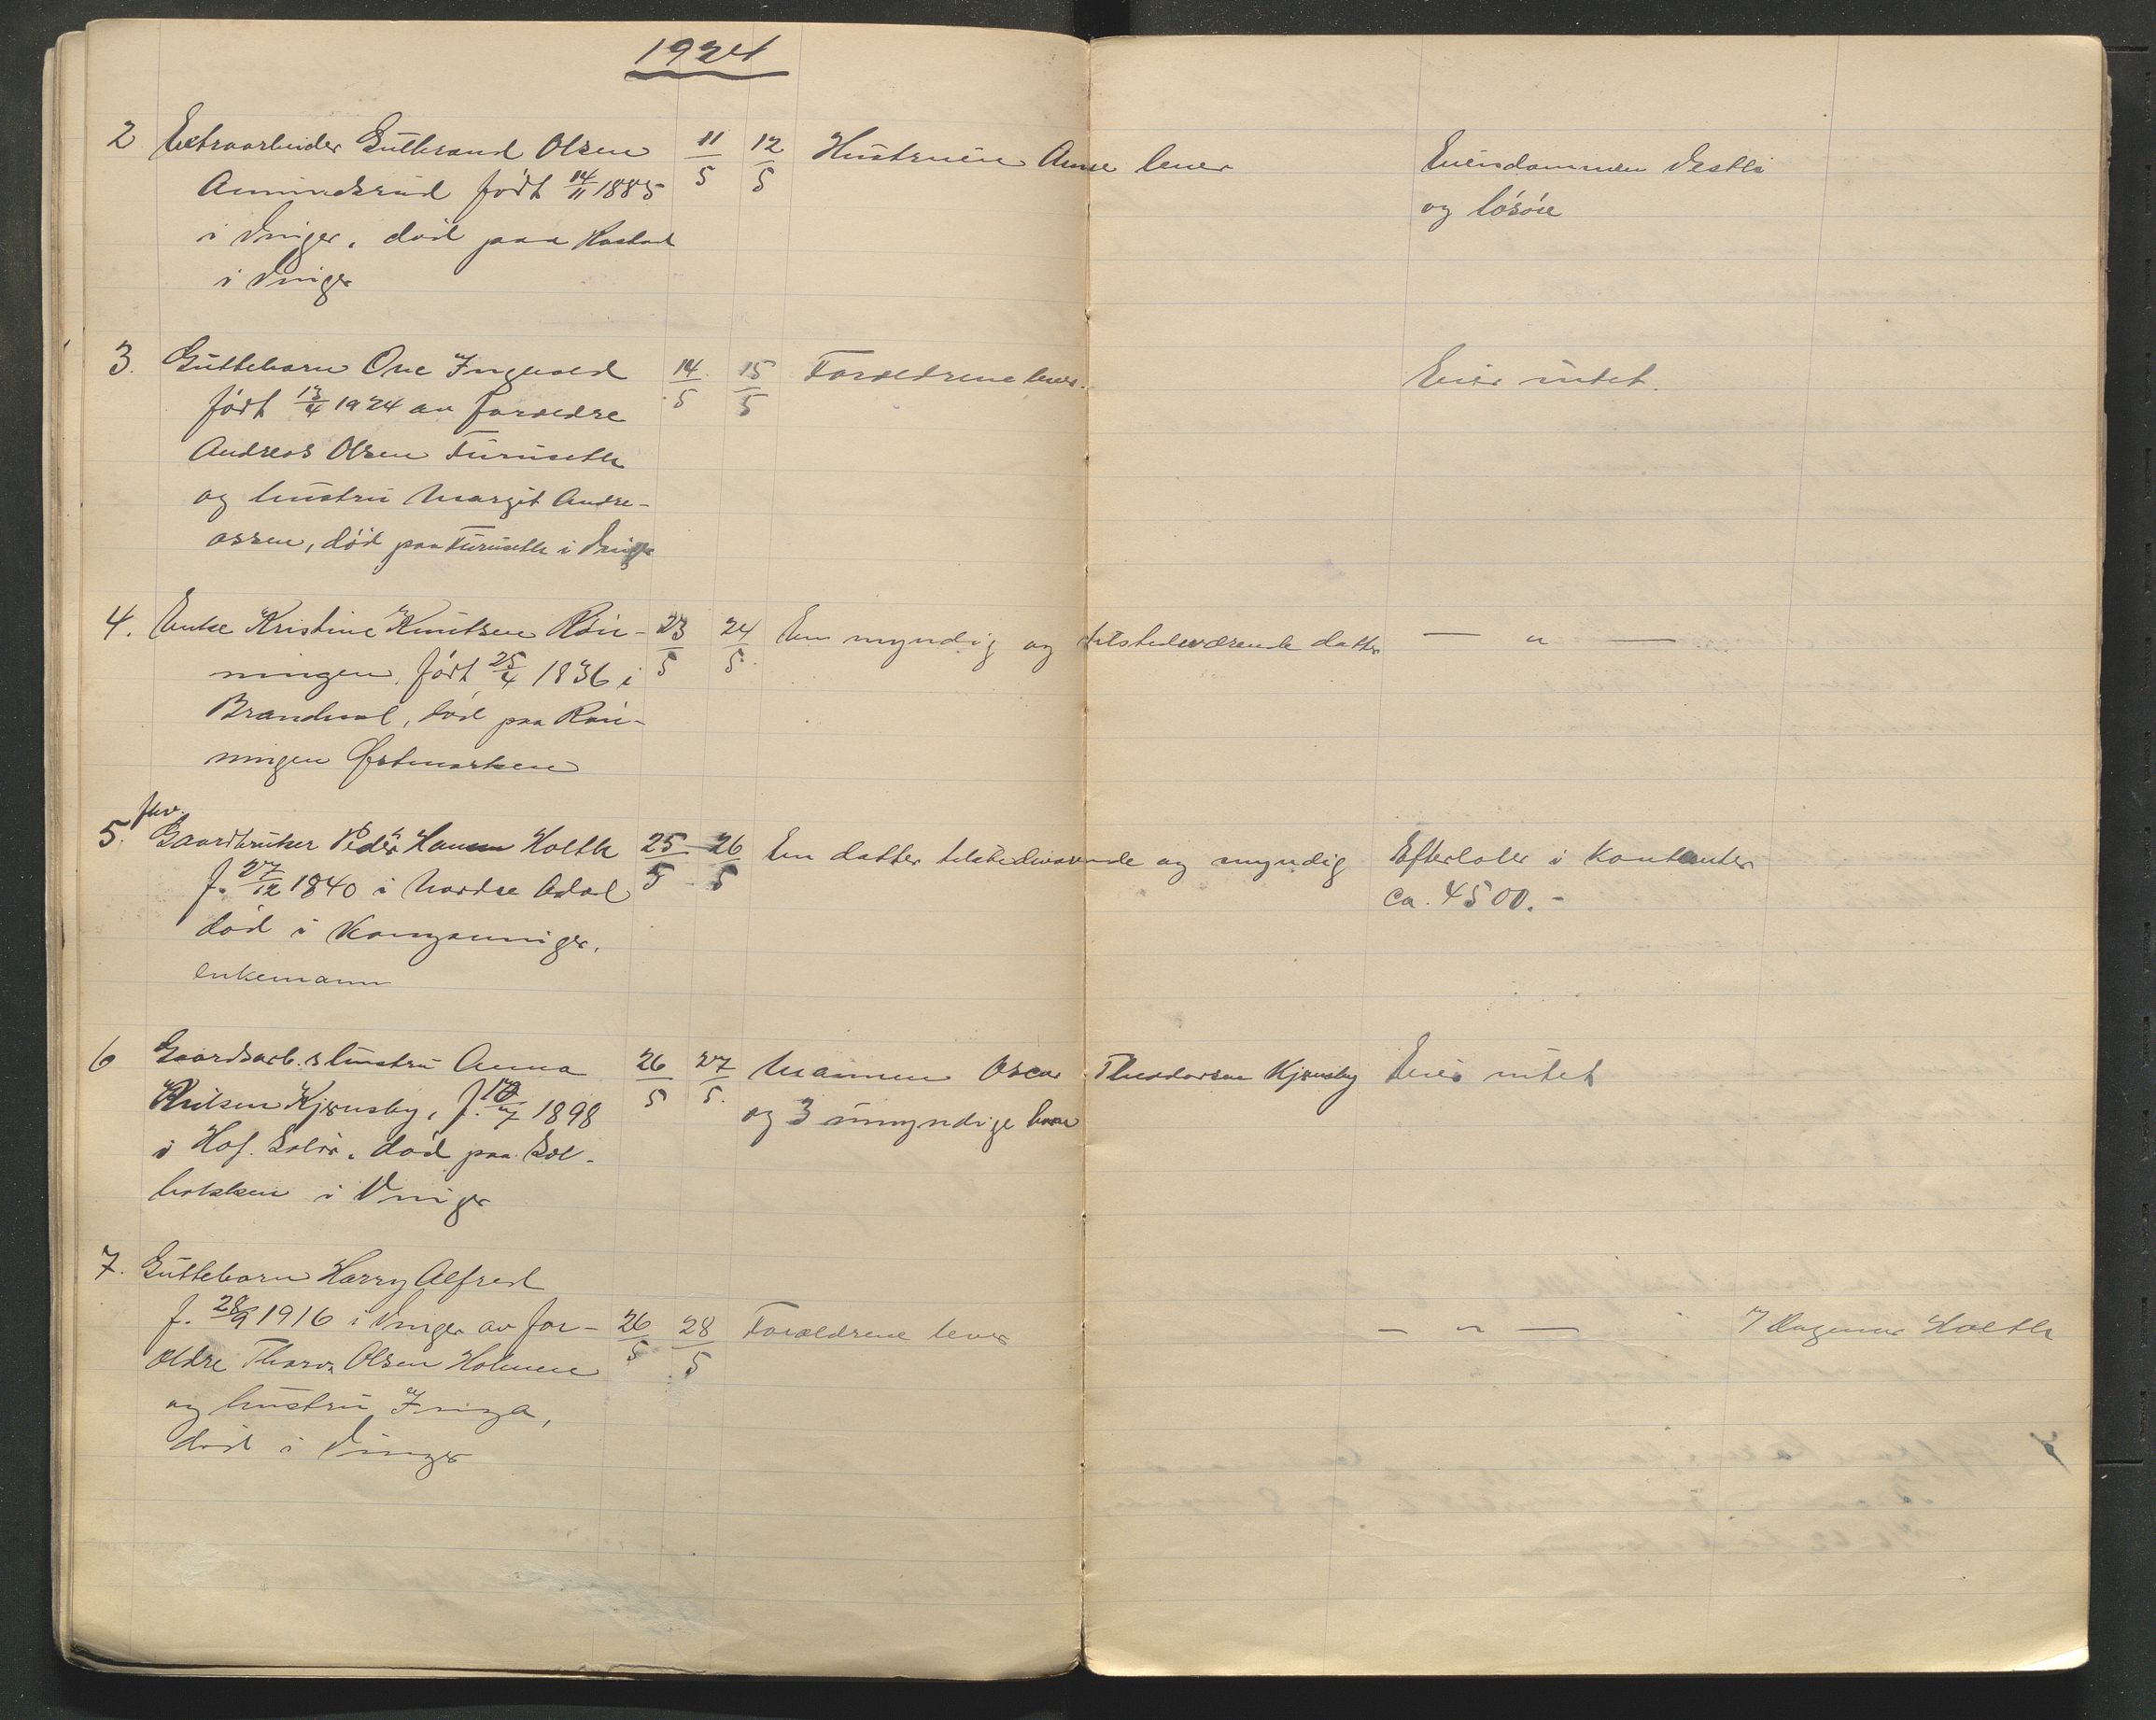 1924
2 Extraarbeider Gulbrand Olsen 11/5 12/5 Hustruen Anne lever Eiendommen Vestli
Amundsrud født 14/11 1885 og løsøre
i Vinger, død paa Rastad
i Vinger
3. Guttebarn Ove Ingvald 14/5 15/5 Forældrene lever. Eier intet.
født 13/4 1924 av forældre
Andreas Olsen Furuseth
og hustru Margit Andre-
assen, død paa Furuseth i Vinger
4. Enke Kristine Knutsen Røn- 23/5 24/5 En myndig og tilstedeværende datter — " —
ningen, født 25/4 1836 i
Brandval, død paa Røn-
ningen Østmarken
fhv.
5. Gaardbruker Peder Hansen Holth 25/5 26/5 En datter tilstedeværende og myndig Efterlater i kontanter
f. 27/12 1840 i Nordre Odal ca. 4500.-
død i Kongsvinger,
enkemann
6 Gaardsarb.s hustru Anna 26/5 27/5 Mannen Oscar Theodorsen Kjensby Eier intet
Nilsen Kjensby, f. /7 1898 og 3 umyndige barn
i Hof. Solør, død paa Sol-
bakken i Vinger
7. Guttebarn Harry Alfred
f. 28/9 1916 i Vinger av for- 26/5 28/5 Forældrene lever — " — 7 Ragnar Holth
ældre Thorv. Olsen Holmen
og hustru Inga,
død i Vinger